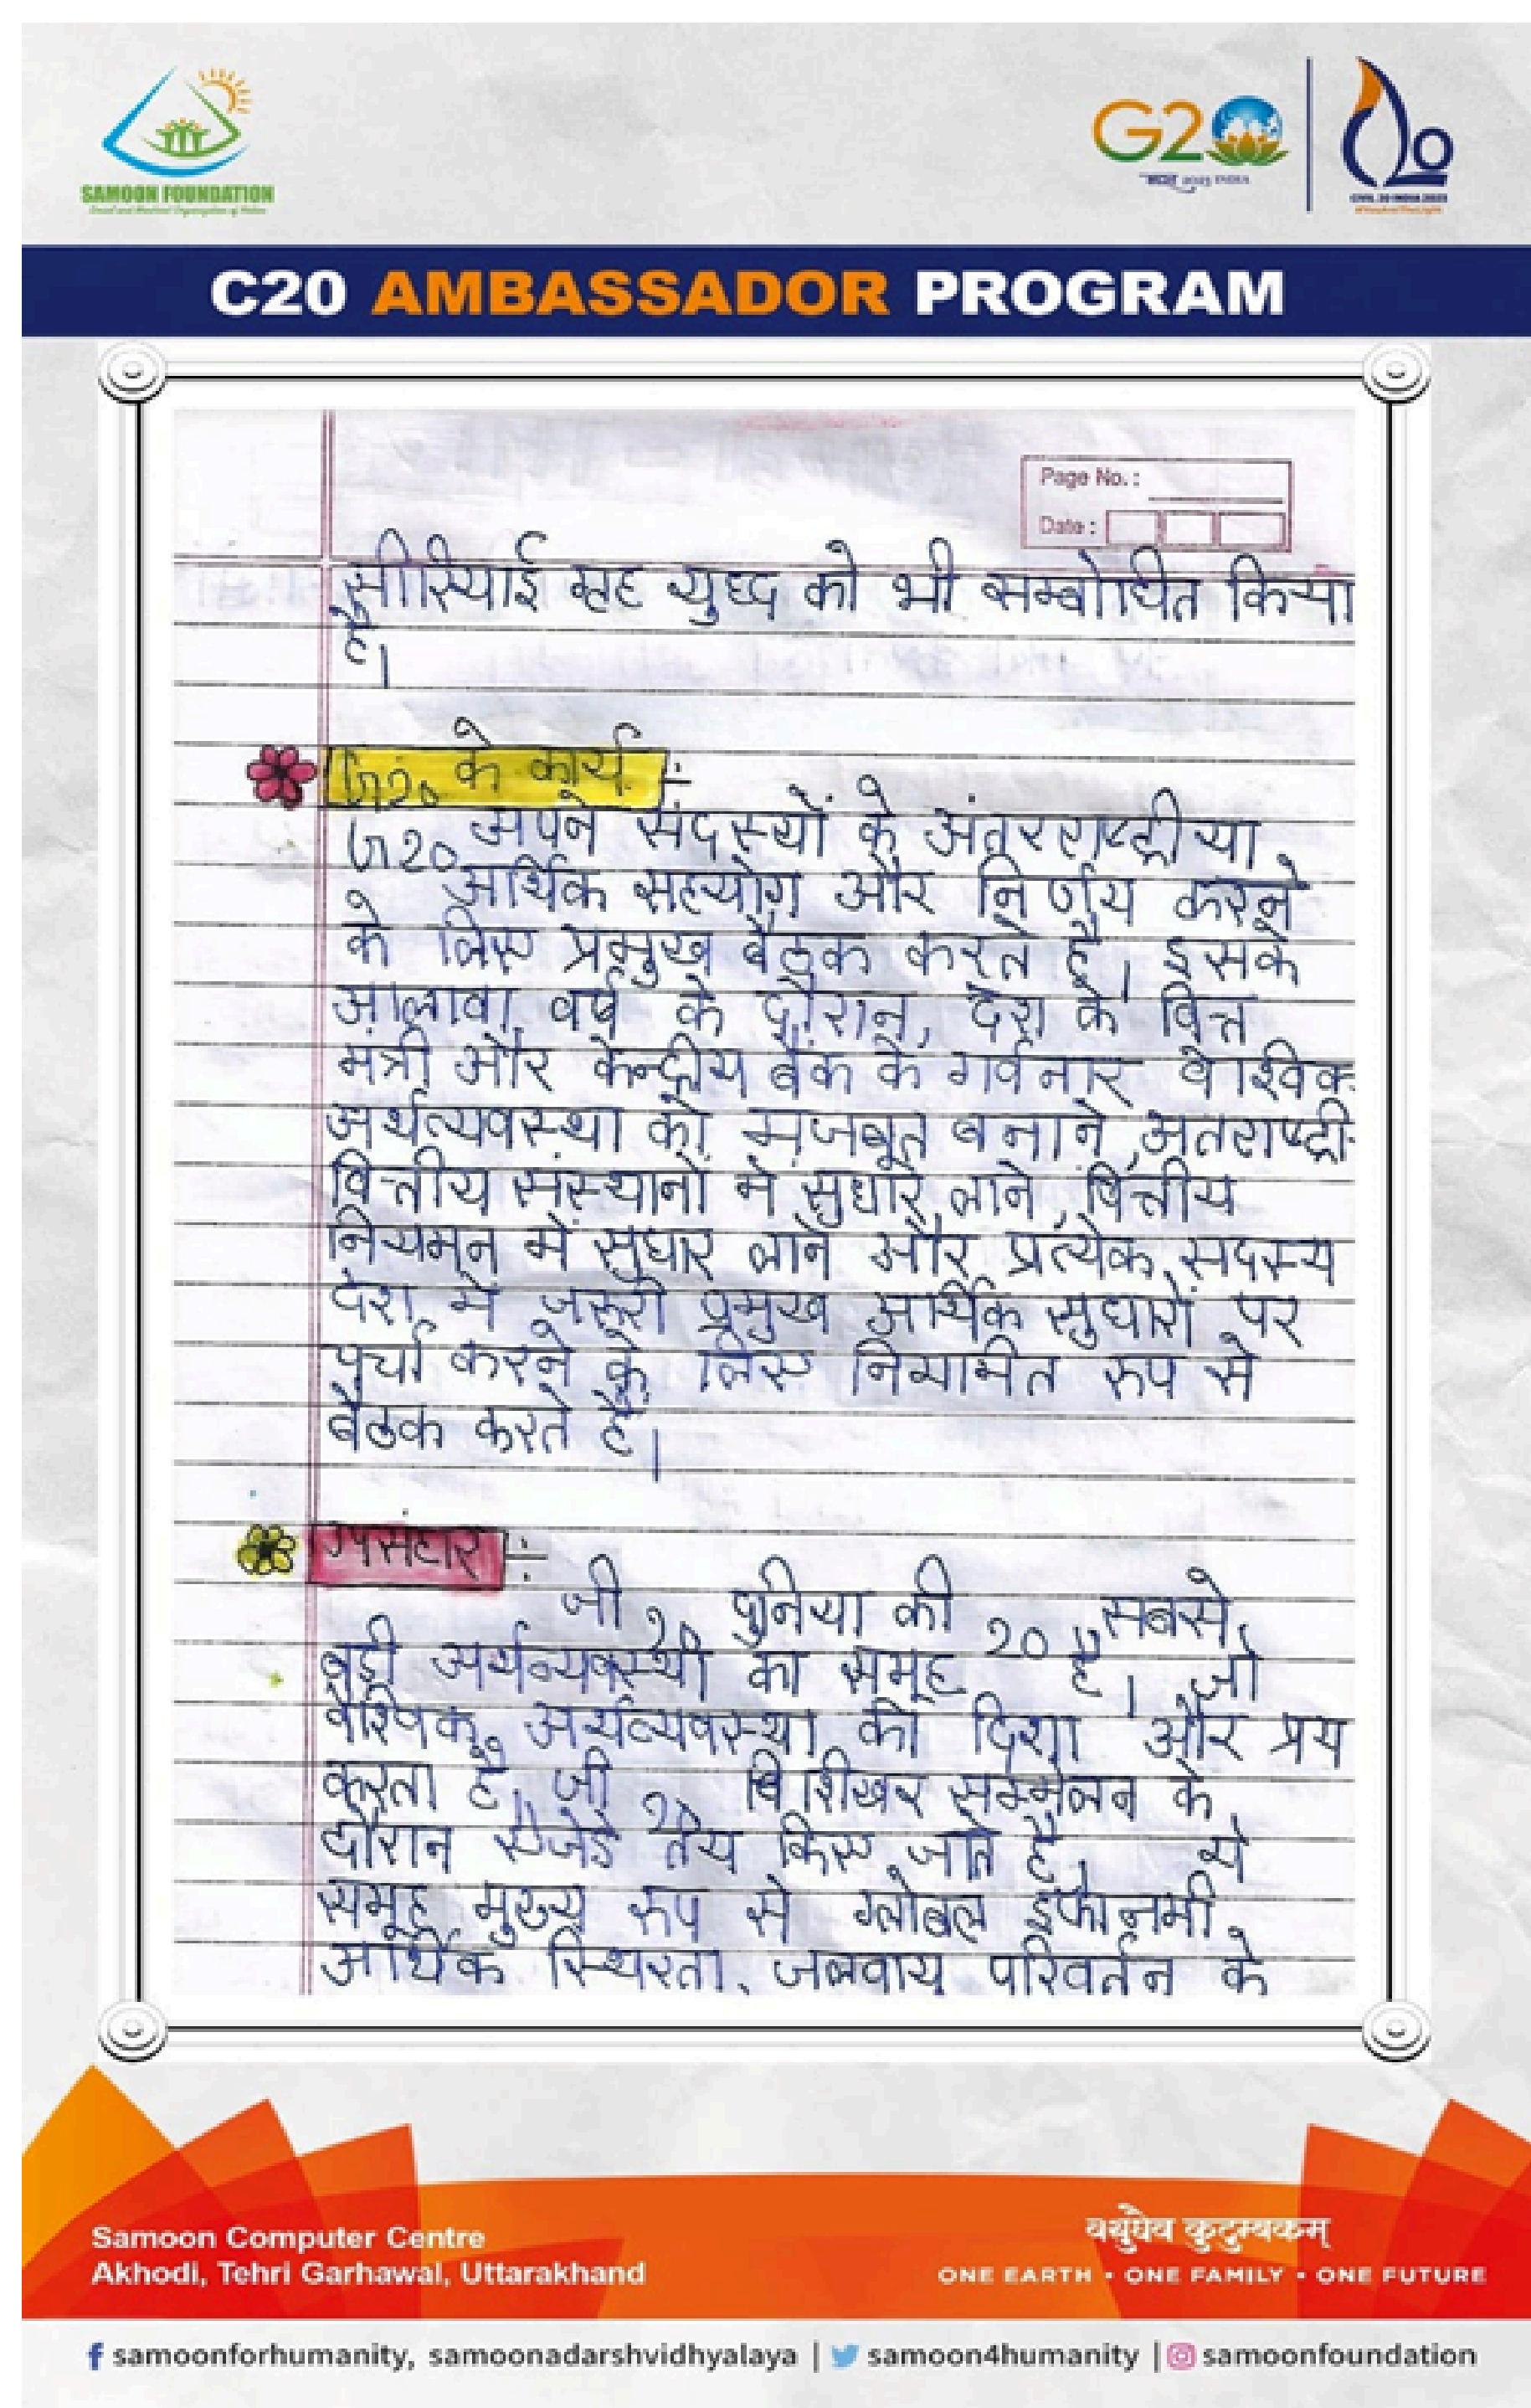 SAMOON FOUNDATION
G20
भारत 2023 INDIA
CIVIL 20 INDIA 2023
C20 AMBASSADOR PROGRAM
Page No.:
Date:
सीरियाई गृह युध्द को भी सम्बोधित किया
है।
G20 के कार्य :-
G20 अपने संदस्यों के अंतरराष्ट्रीया
आर्थिक सहयोग और निर्णय करने
के लिए प्रमुख बैठक करते है। इसके
आलावा वर्ष के दौरान, देश के वित्त
मंत्री और केन्द्रीय बैंक के गर्वनार वैश्विक
अर्थव्यवस्था को मजबूत बनाने, अंतराष्ट्री
वित्तीय संस्थानों में सुधार लाने, वित्तीय
नियमन में सुधार लाने और प्रत्येक सदस्य
देश में जरुरी प्रमुख आर्थिक सुधारों पर
चर्चा करने के लिए नियमित रुप से
बैठक करते हैं।
उपसंहार :-
जी 20 दुनिया की सबसे
बड़ी अर्थव्यवस्थी का समूह है। जो
वैश्विक अर्थव्यवस्था की दिशा और प्रय
करता है। जी 20 शिखर सम्मेलन के
दौरान एजेंडे तय किए जाते है। ये
समूह मुख्य रुप से ग्लोबल इकोनमी,
आर्थिक स्थिरता, जलवायु परिवर्तन के
Samoon Computer Centre
Akhodi, Tehri Garhawal, Uttarakhand
वसुधैव कुटुम्बकम्
ONE EARTH • ONE FAMILY • ONE FUTURE
samoonforhumanity, samoonadarshvidhyalaya | samoon4humanity | samoonfoundation